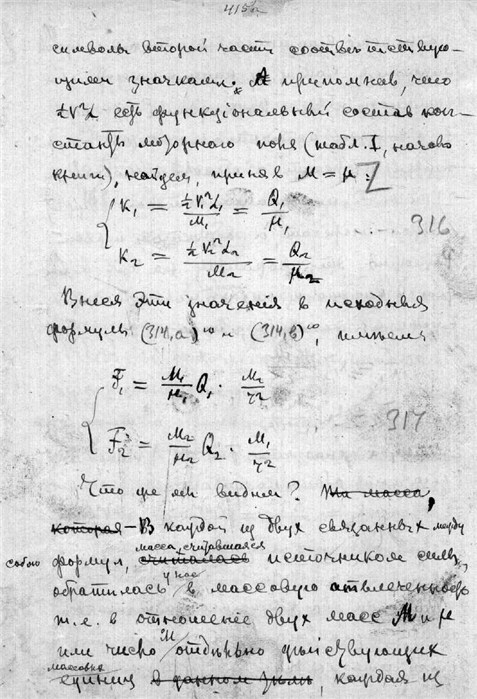 415а
символы второй части соответствую-
щими значками. И припомнив, что
½V²L есть функціональный состав кон-
станты моторного поля (табл. I, начало
книги), найдем, приняв M = μ:
K₁ = ½V₁²L₁ / M₁ = Q₁ / μ₁
316
K₂ = ½V₂²L₂ / M₂ = Q₂ / μ₂
Внеся эти значенія в исходныя
формулы (314,a)ю и (314,b)ю, имеем
F₁ = M₁/μ₁ Q₁ · M₂/r²
317
F₂ = M₂/μ₂ Q₂ · M₁/r²
Что же мы видим? Та масса,
которая – В каждой из двух связанных между
собою формул, масса, считавшаяся считалась источником силы,
у нас
обратилась в массовую отвлеченность
т.е. в отношение двух масс M и μ
или число отдельно действующих
массовых единиц в данном , каждая из